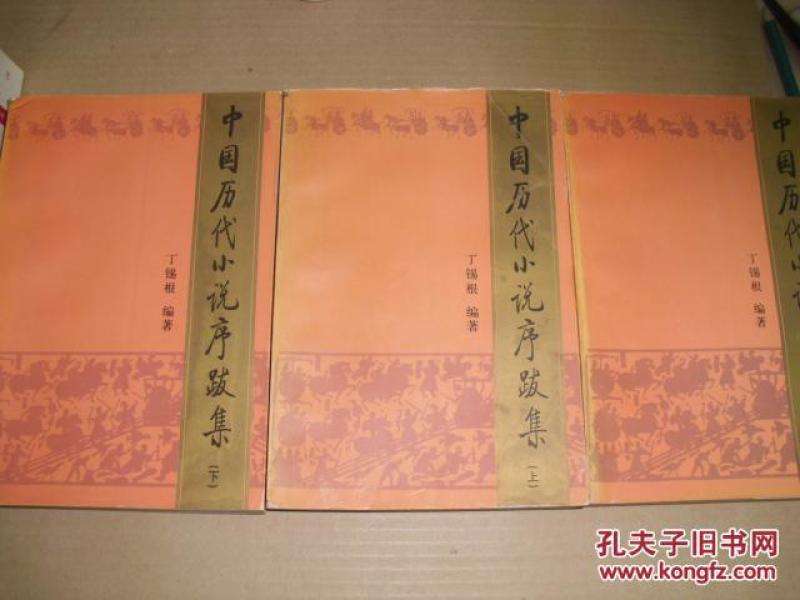 中国历代小说序跋集
(下)
丁锡根 编著
中国历代小说序跋集
(上)
丁锡根 编著
中国历代小
丁锡根 编著
孔夫子旧书网
www.kongfz.com